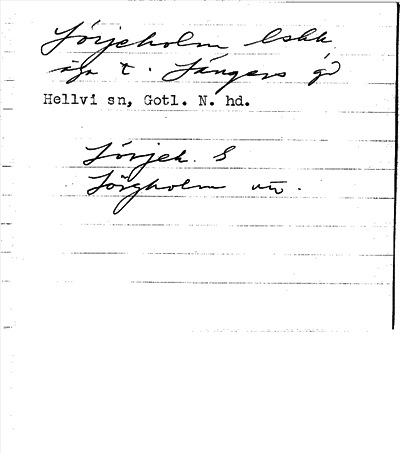 Sörjeholm
äga t. Sängers gd
Hellvi sn, Gotl. N. hd.
Sörjeh. S
Sörgholm utv.